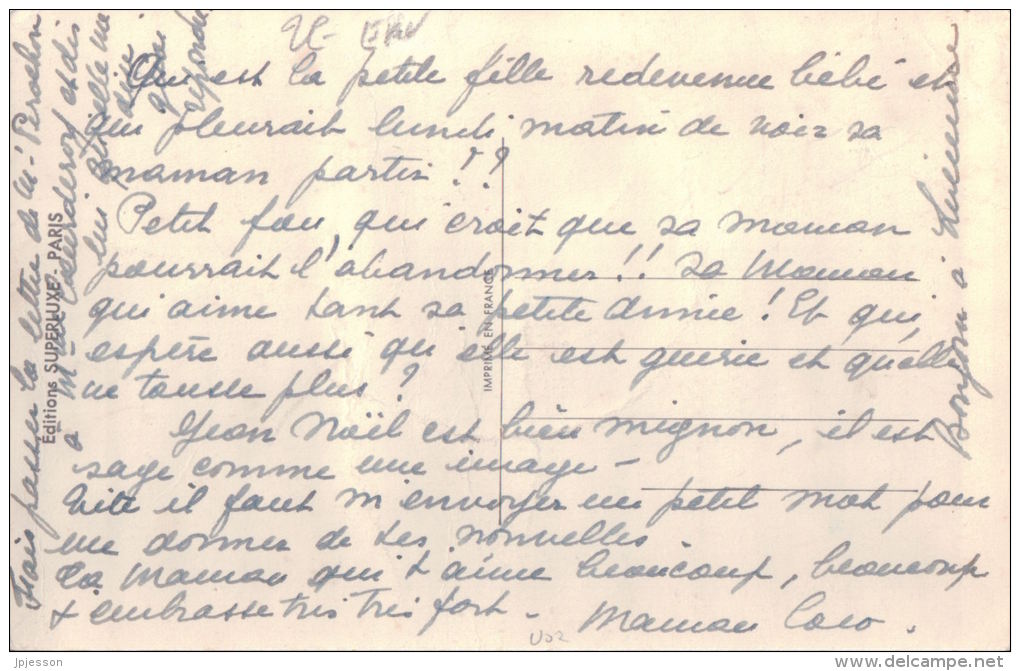 Qui est la petite fille redevenue bébé et
qui pleurait lundi matin de voir sa
maman partir !?
Petit fou, qui croit que sa maman
pourrait l'abandonner !! Sa Maman
qui aime tant sa petite Annie ! Et qui
espère aussi qu'elle est guérie et qu'elle
ne tousse plus ?
Jean Noël est bien mignon, il est
sage comme une image -
Vite il faut m'envoyer un petit mot pour
me donner de tes nouvelles.
Ta Maman qui t'aime beaucoup, beaucoup
t'embrasse très très fort -
Maman Coco.
Fais passer la lettre de
à
lui
Bonjour à
Éditions SUPERLUXE - PARIS
IMPRIMÉ EN FRANCE
jpjesson
delcampe.net